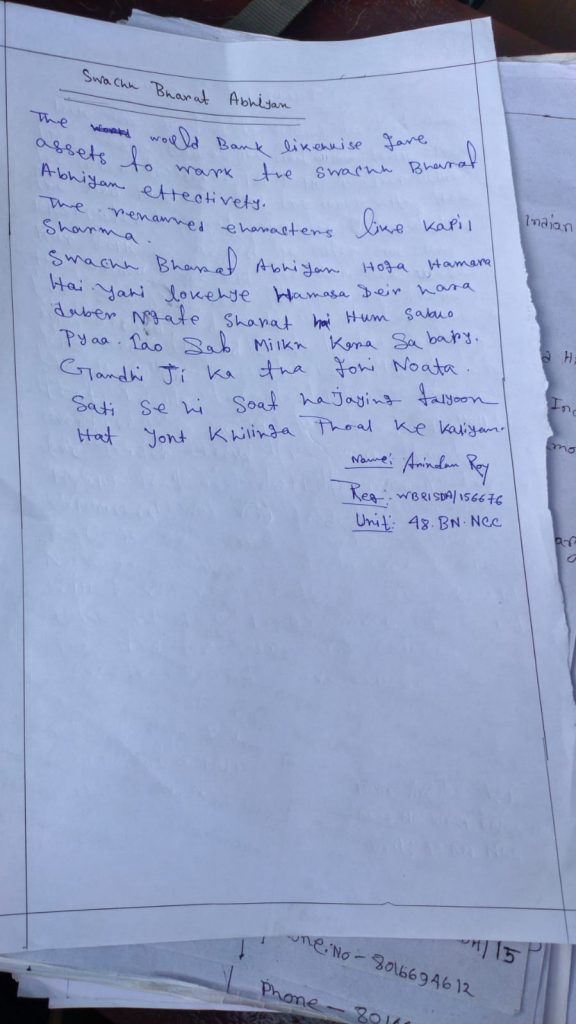 Swachh Bharat Abhiyan
The world Bank likewise gave
assets to wark the swachh Bharat
Abhiyan effectively.
The renamed characters like Kapil
Sharma.
Swachh Bharat Abhiyan Hoga Hamara
Hai yahi lokehye Hamasa Deir hara
daber Ngate sharat hai Hum Sabko
Pyaa. Iao Sab Milkn Kena Sa bapy.
Gandhi Ji Ka tha Joni Noata.
Sati se hi Soaf hajaying Jalyoon
Hat yont Khilinga Thoal Ke Kaliyan.
Name: Arindam Roy
Reg: WB21SDA/156676
Unit: 48.BN.NCC
Indian
/15
one.No - 8016694612
Phone - 8016